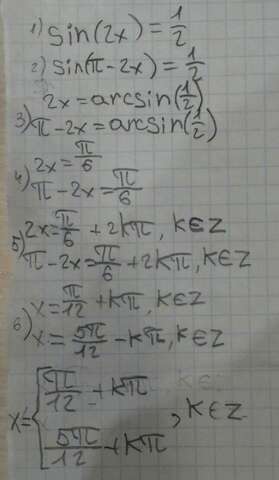 1) sin(2x) = 1/2
2) sin(π-2x) = 1/2
2x = arcsin(1/2)
3) π-2x = arcsin(1/2)
2x = π/6
4) π-2x = π/6
2x = π/6 + 2kπ, k∈Z
5) π-2x = π/6 + 2kπ, k∈Z
x = π/12 + kπ, k∈Z
6) x = 5π/12 - kπ, k∈Z
x = { [ π/12 + kπ
, k∈Z
5π/12 + kπ